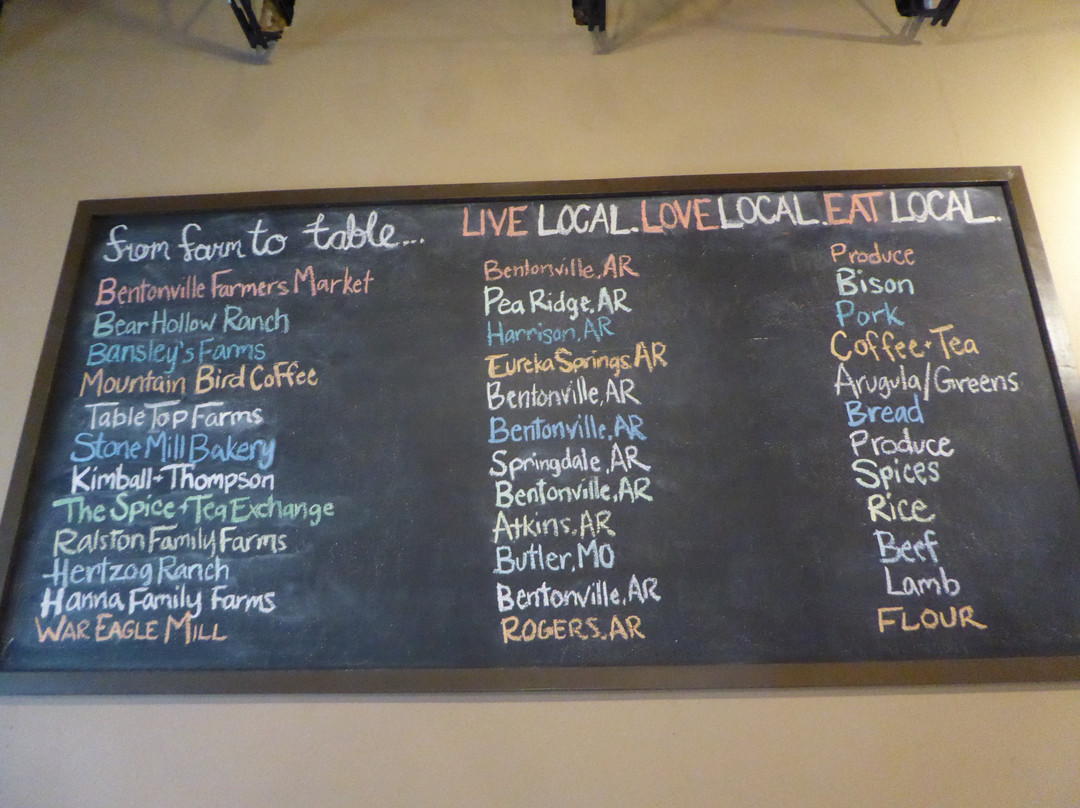 from farm to table... LIVE LOCAL. LOVE LOCAL. EAT LOCAL.
Bentonville Farmers Market Bentonville, AR Produce
Bear Hollow Ranch Pea Ridge, AR Bison
Bansley's Farms Harrison, AR Pork
Mountain Bird Coffee Eureka Springs, AR Coffee + Tea
Table Top Farms Bentonville, AR Arugula/Greens
Stone Mill Bakery Bentonville, AR Bread
Kimball + Thompson Springdale, AR Produce
The Spice + Tea Exchange Bentonville, AR Spices
Ralston Family Farms Atkins, AR Rice
Hertzog Ranch Butler, MO Beef
Hanna Family Farms Bentonville, AR Lamb
WAR EAGLE MILL ROGERS, AR FLOUR